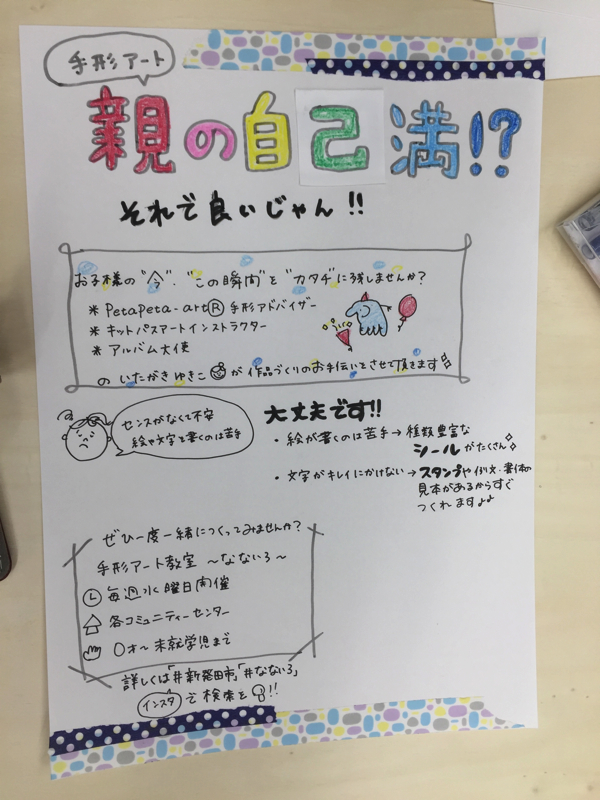 手形アート
親の自己満!?
それで良いじゃん!!
お子様の"今"、"この瞬間"を"カタチ"に残しませんか?
* Petapeta-art®手形アドバイザー
* キットパスアートインストラクター
* アルバム大使
の いたがきゆきこ が 作品づくりのお手伝いをさせて頂きます
センスがなくて不安
絵や文字を書くのは苦手
大丈夫です!!
・絵が書くのは苦手→種類豊富な
シールがたくさん
・文字がキレイにかけない→スタンプや例文・書体の
見本があるからすぐ
つくれます♪♪
ぜひ一度一緒につくってみませんか?
手形アート教室 〜なないろ〜
毎週水曜日開催
各コミュニティーセンター
0才〜未就学児まで
詳しくは「#新発田市」「#なないろ」
インスタで検索を!!